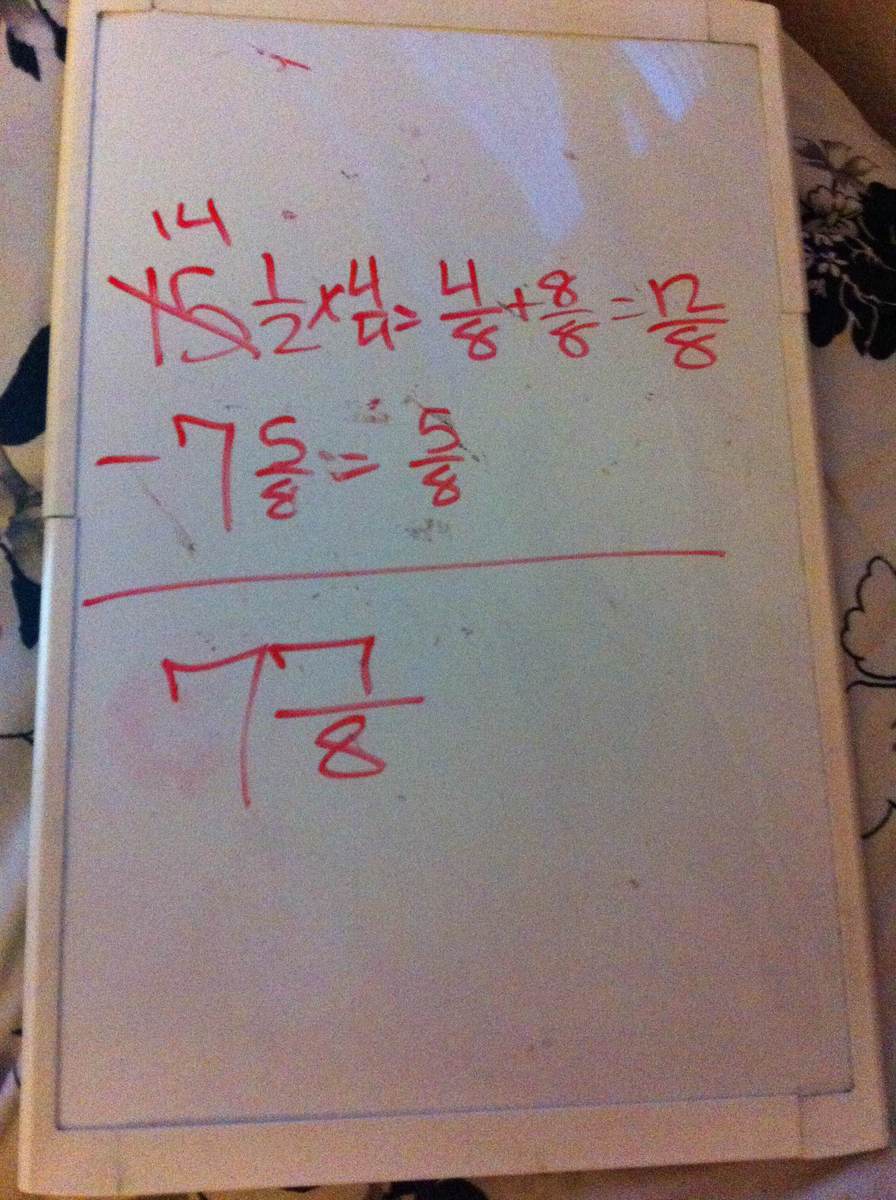 14
15 1/2 × 4/4 = 4/8 + 8/8 = 12/8
- 7 5/8 = 5/8
7 7/8